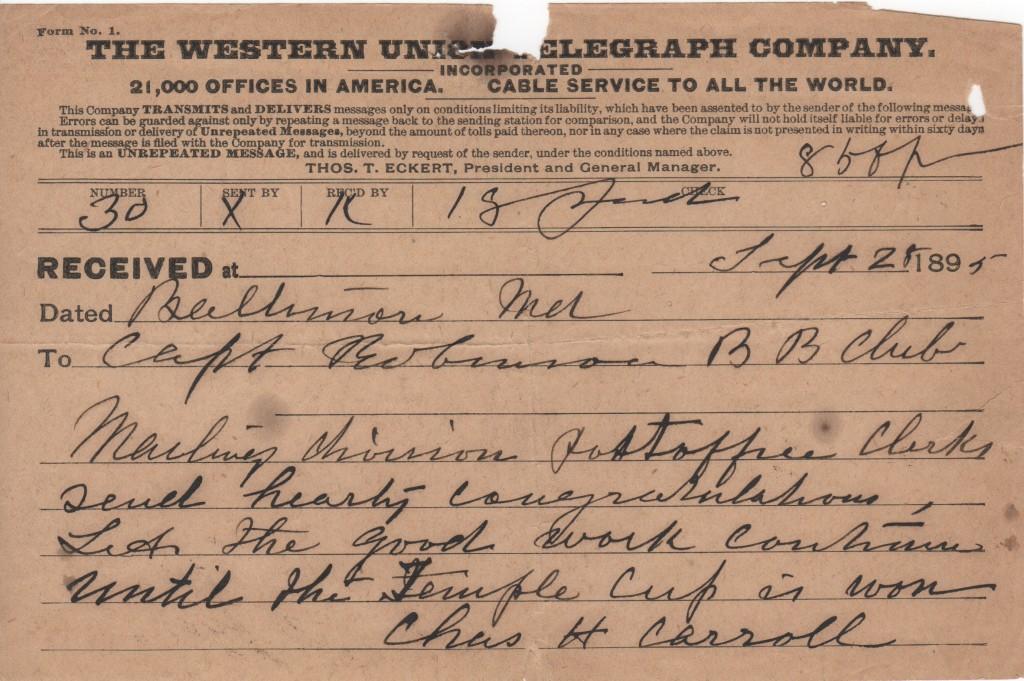 Form No. 1.
THE WESTERN UNION TELEGRAPH COMPANY.
INCORPORATED
21,000 OFFICES IN AMERICA. CABLE SERVICE TO ALL THE WORLD.
This Company TRANSMITS and DELIVERS messages only on conditions limiting its liability, which have been assented to by the sender of the following message.
Errors can be guarded against only by repeating a message back to the sending station for comparison, and the Company will not hold itself liable for errors or delays
in transmission or delivery of Unrepeated Messages, beyond the amount of tolls paid thereon, nor in any case where the claim is not presented in writing within sixty days
after the message is filed with the Company for transmission.
This is an UNREPEATED MESSAGE, and is delivered by request of the sender, under the conditions named above.
THOS. T. ECKERT, President and General Manager.
858p
NUMBER SENT BY REC'D BY CHECK
30 X K 18
RECEIVED at Sept 28 1895
Dated Baltimore Md
To Capt Robinson B B Club
Mailing division Postoffice Clerks
send hearty congratulations,
Let the good work continue
until the Temple Cup is won
Chas H Carroll